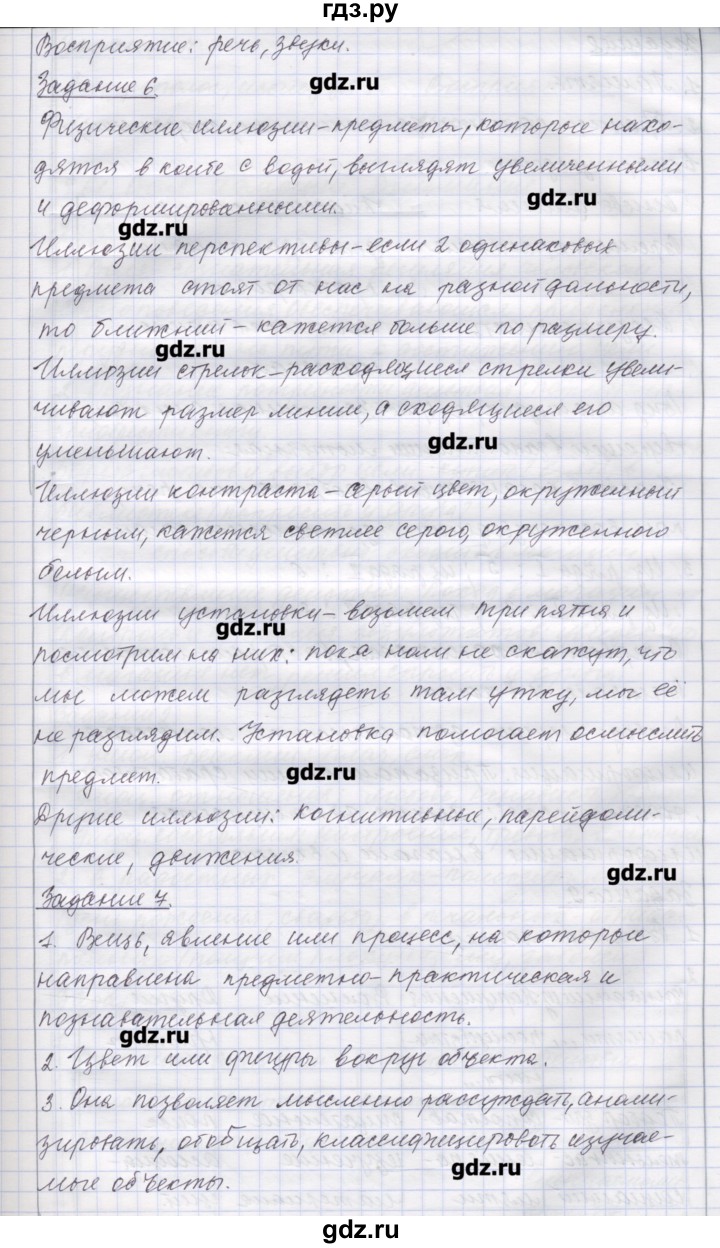 гдз.ру
Восприятие: речь, звуки.
Задание 6.
gdz.ru
Физические иллюзии – предметы, которые нахо-
дятся в колбе с водой, выглядят увеличенными
gdz.ru
и деформированными.
gdz.ru
Иллюзии перспективы – если 2 одинаковых
предмета стоят от нас на разной дальности,
то ближний – кажется больше по размеру.
gdz.ru
Иллюзии стрелок – расходящиеся стрелки увели-
чивают размер линии, а сходящиеся его
gdz.ru
уменьшают.
Иллюзии контраста – серый цвет, окруженный
черным, кажется светлее серого, окруженного
белым.
Иллюзии установки – возьмем три пятна и
gdz.ru
посмотрим на них: пока нам не скажут, что
мы можем разглядеть там утку, мы её
не разглядим. Установка помогает осмыслить
предмет.
gdz.ru
Другие иллюзии: когнитивные, парейдоли-
ческие, движения.
gdz.ru
Задание 7.
1. Вещь, явление или процесс, на которые
направлена предметно-практическая и
познавательная деятельность.
gdz.ru
2. Цвет или фигуры вокруг объекта.
3. Она позволяет мысленно рассуждать, анали-
зировать, обобщать, классифицировать изучае-
мые объекты.
gdz.ru
gdz.ru